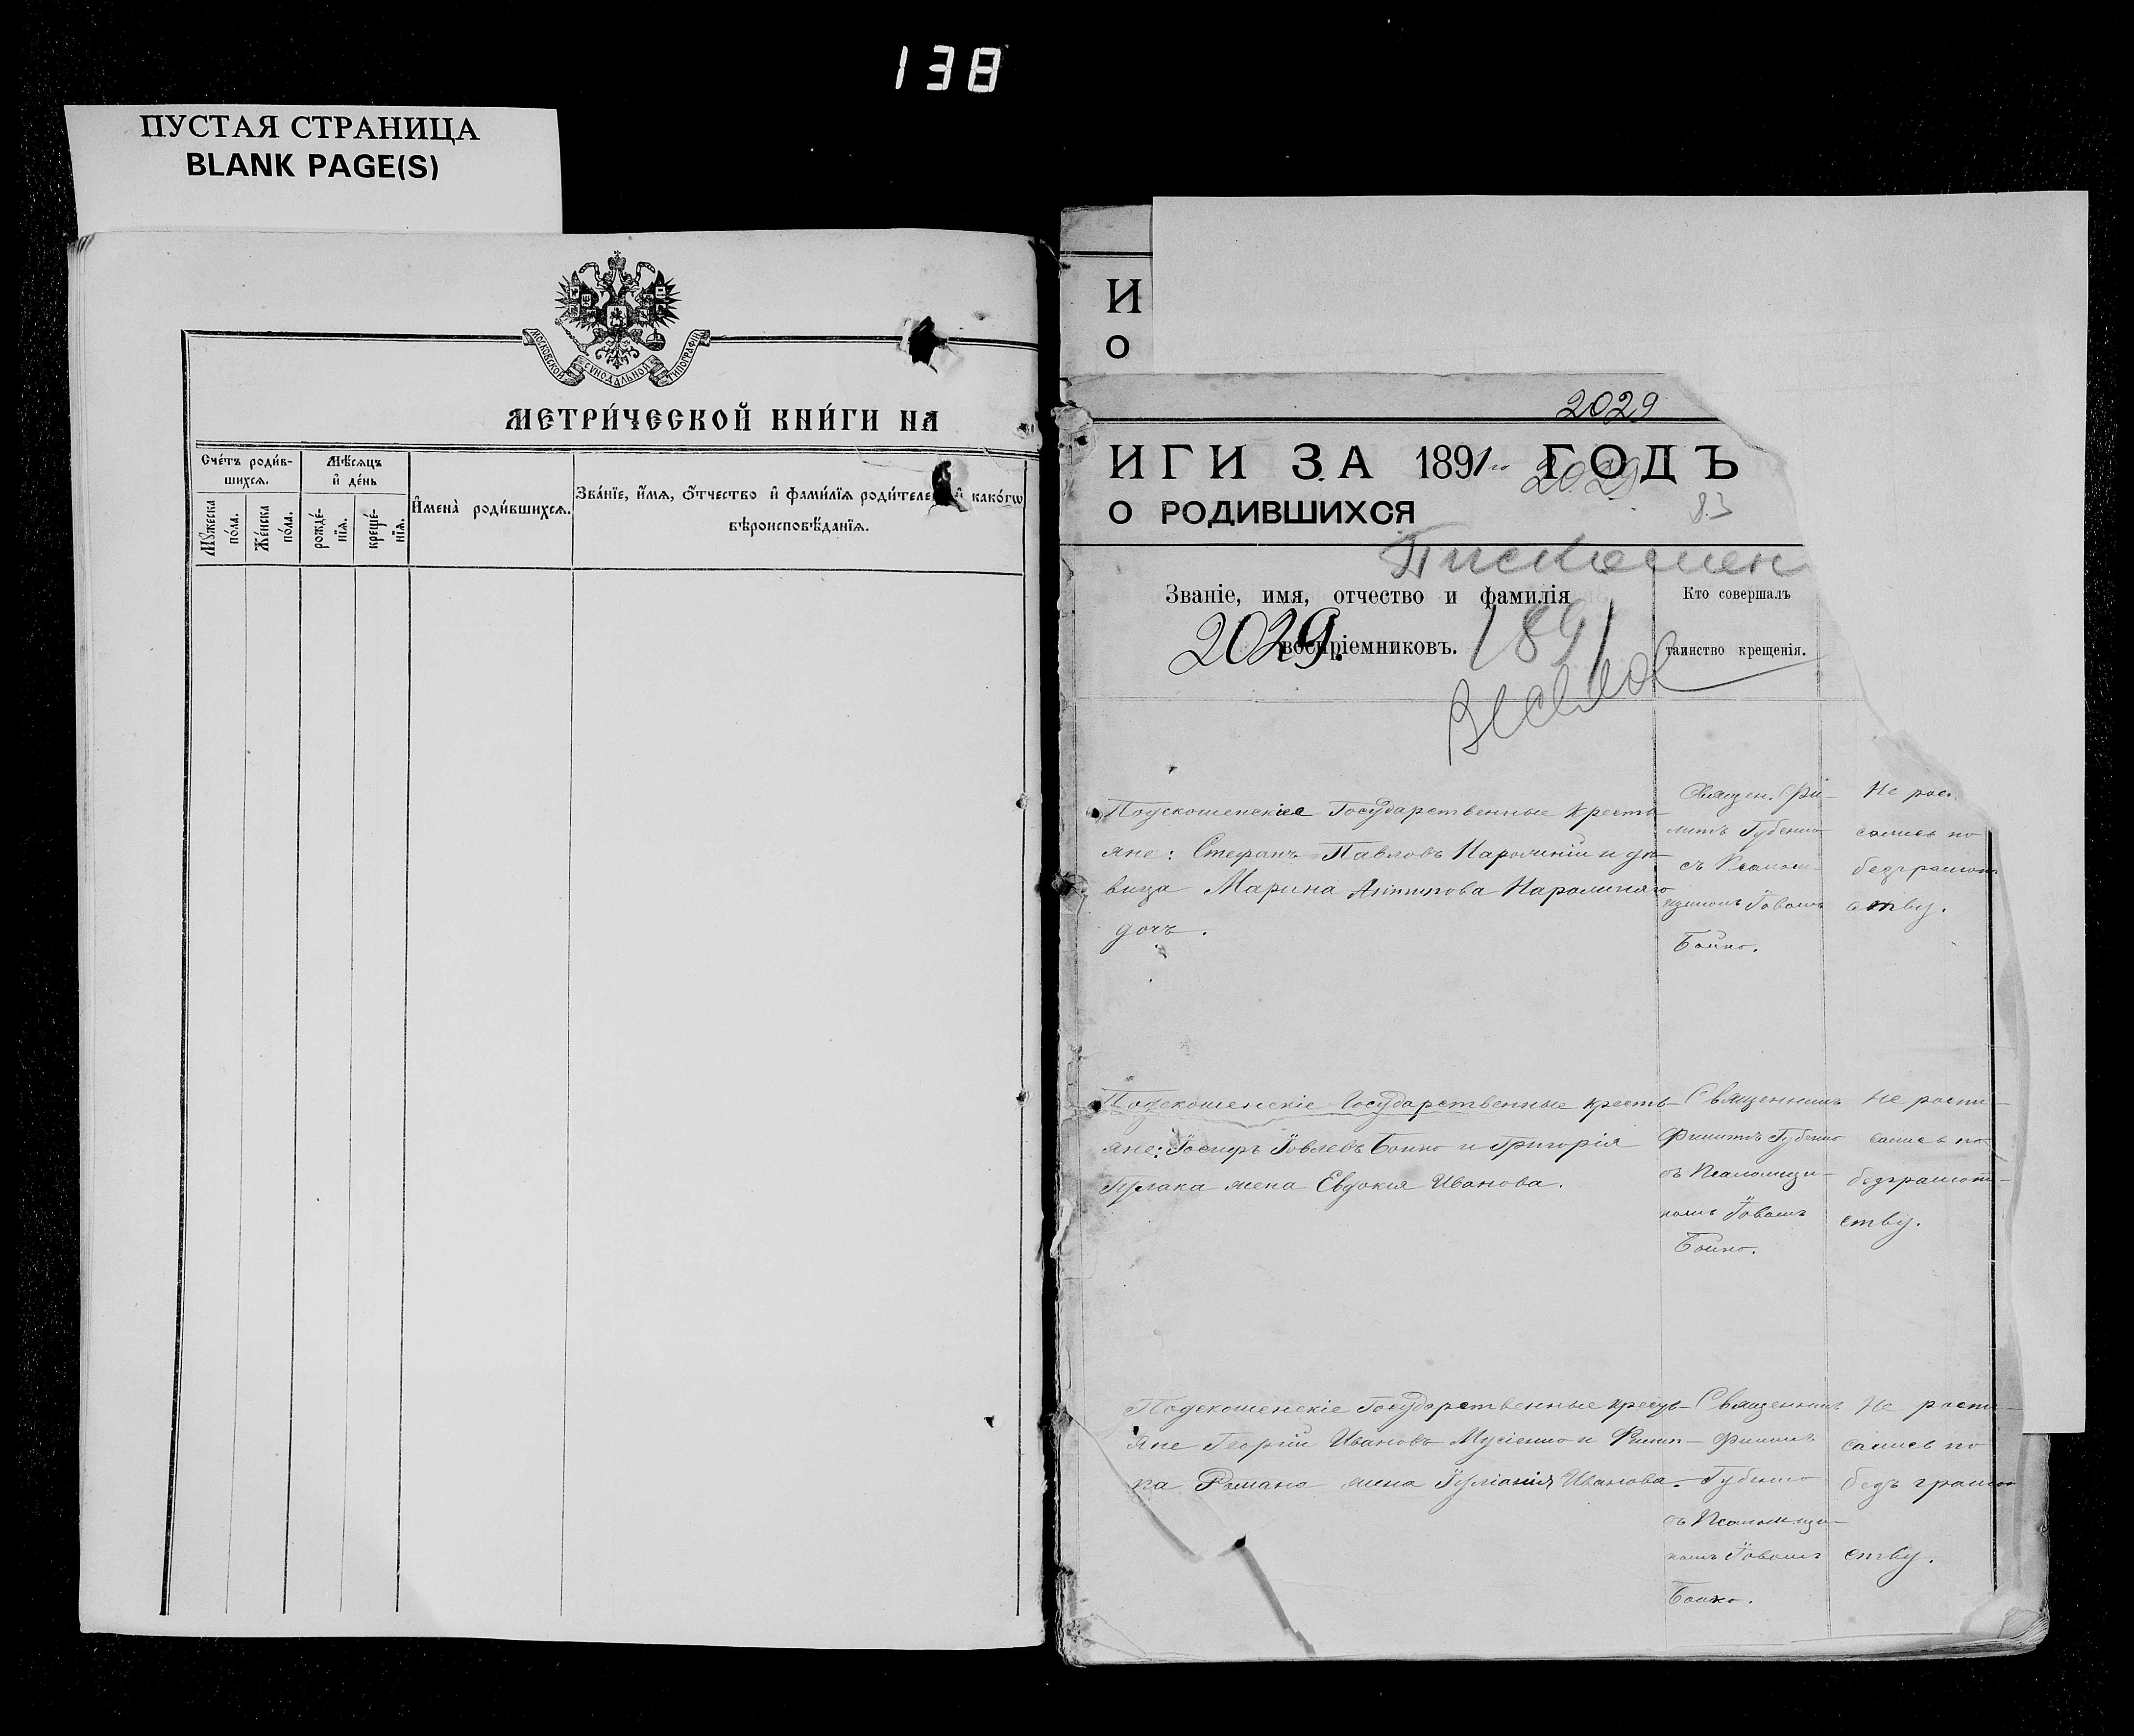 138
ПУСТАЯ СТРАНИЦА
BLANK PAGE(S)
МОСКОВСКОЙ СѴНОДАЛЬНОЙ ТИПОГРАФІИ
МЕТРИ́ЧЕСКОЙ КНИ́ГИ НА
Сче́тъ роди́в-
шихся.
Мѣ́сяцъ
и҆ де́нь
И҆мена̀ роди́вшихся.
Зва́нїе, и҆́мя, ѻ҆́тчество и҆ фами́лїя роди́теле и҆ како́гѡ
вѣроисповѣ́данїя.
Мꙋ́жеска
по́ла.
Же́нска
по́ла.
рожде́-
нїя.
креще́-
нїя.
И
О
2029
ИГИ ЗА 1891 ГОДЪ
2029
О РОДИВШИХСЯ
83
Званіе, имя, отчество и фамилія
Кто совершалъ
2029.
воспріемниковъ.
1891
таинство крещенія.
Подскошенскіе Государственные кресть-
яне: Стефанъ Павловъ и дѣ-
вица Марина Антипова
дочь.
Священ. Фи-
липъ Губенко
съ Псалом-
щикомъ Іовомъ
Бойко.
Не рос.
сались по
безграмот
ству.
Подскошенскіе Государственные кресть-
яне: Іосифъ Іовлевъ Бойко и Григорія
жена Евдокія Иванова.
Священникъ
Филипъ Губенко
съ Псаломщи-
комъ Іовомъ
Бойко.
Не роспи-
сались по
безграмот-
ству.
Подскошенскіе Государственные кресть-
яне Георгій Ивановъ Мусіенко и Филип-
па Романо жена Іуліанія Иванова.
Священникъ
Филипъ
Губенко
съ Псаломщи-
комъ Іовомъ
Бойко.
Не роспи-
сались по
безъ грамот
ству.